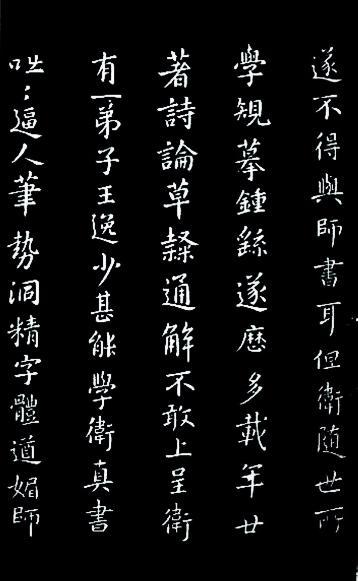 遂不得與師書耳但衛隨世所
學規摹鍾繇遂歷多載年廿
著詩論草隸通解不敢上呈衛
有一弟子王逸少甚能學衛真書
咄咄逼人筆勢洞精字體遒媚師